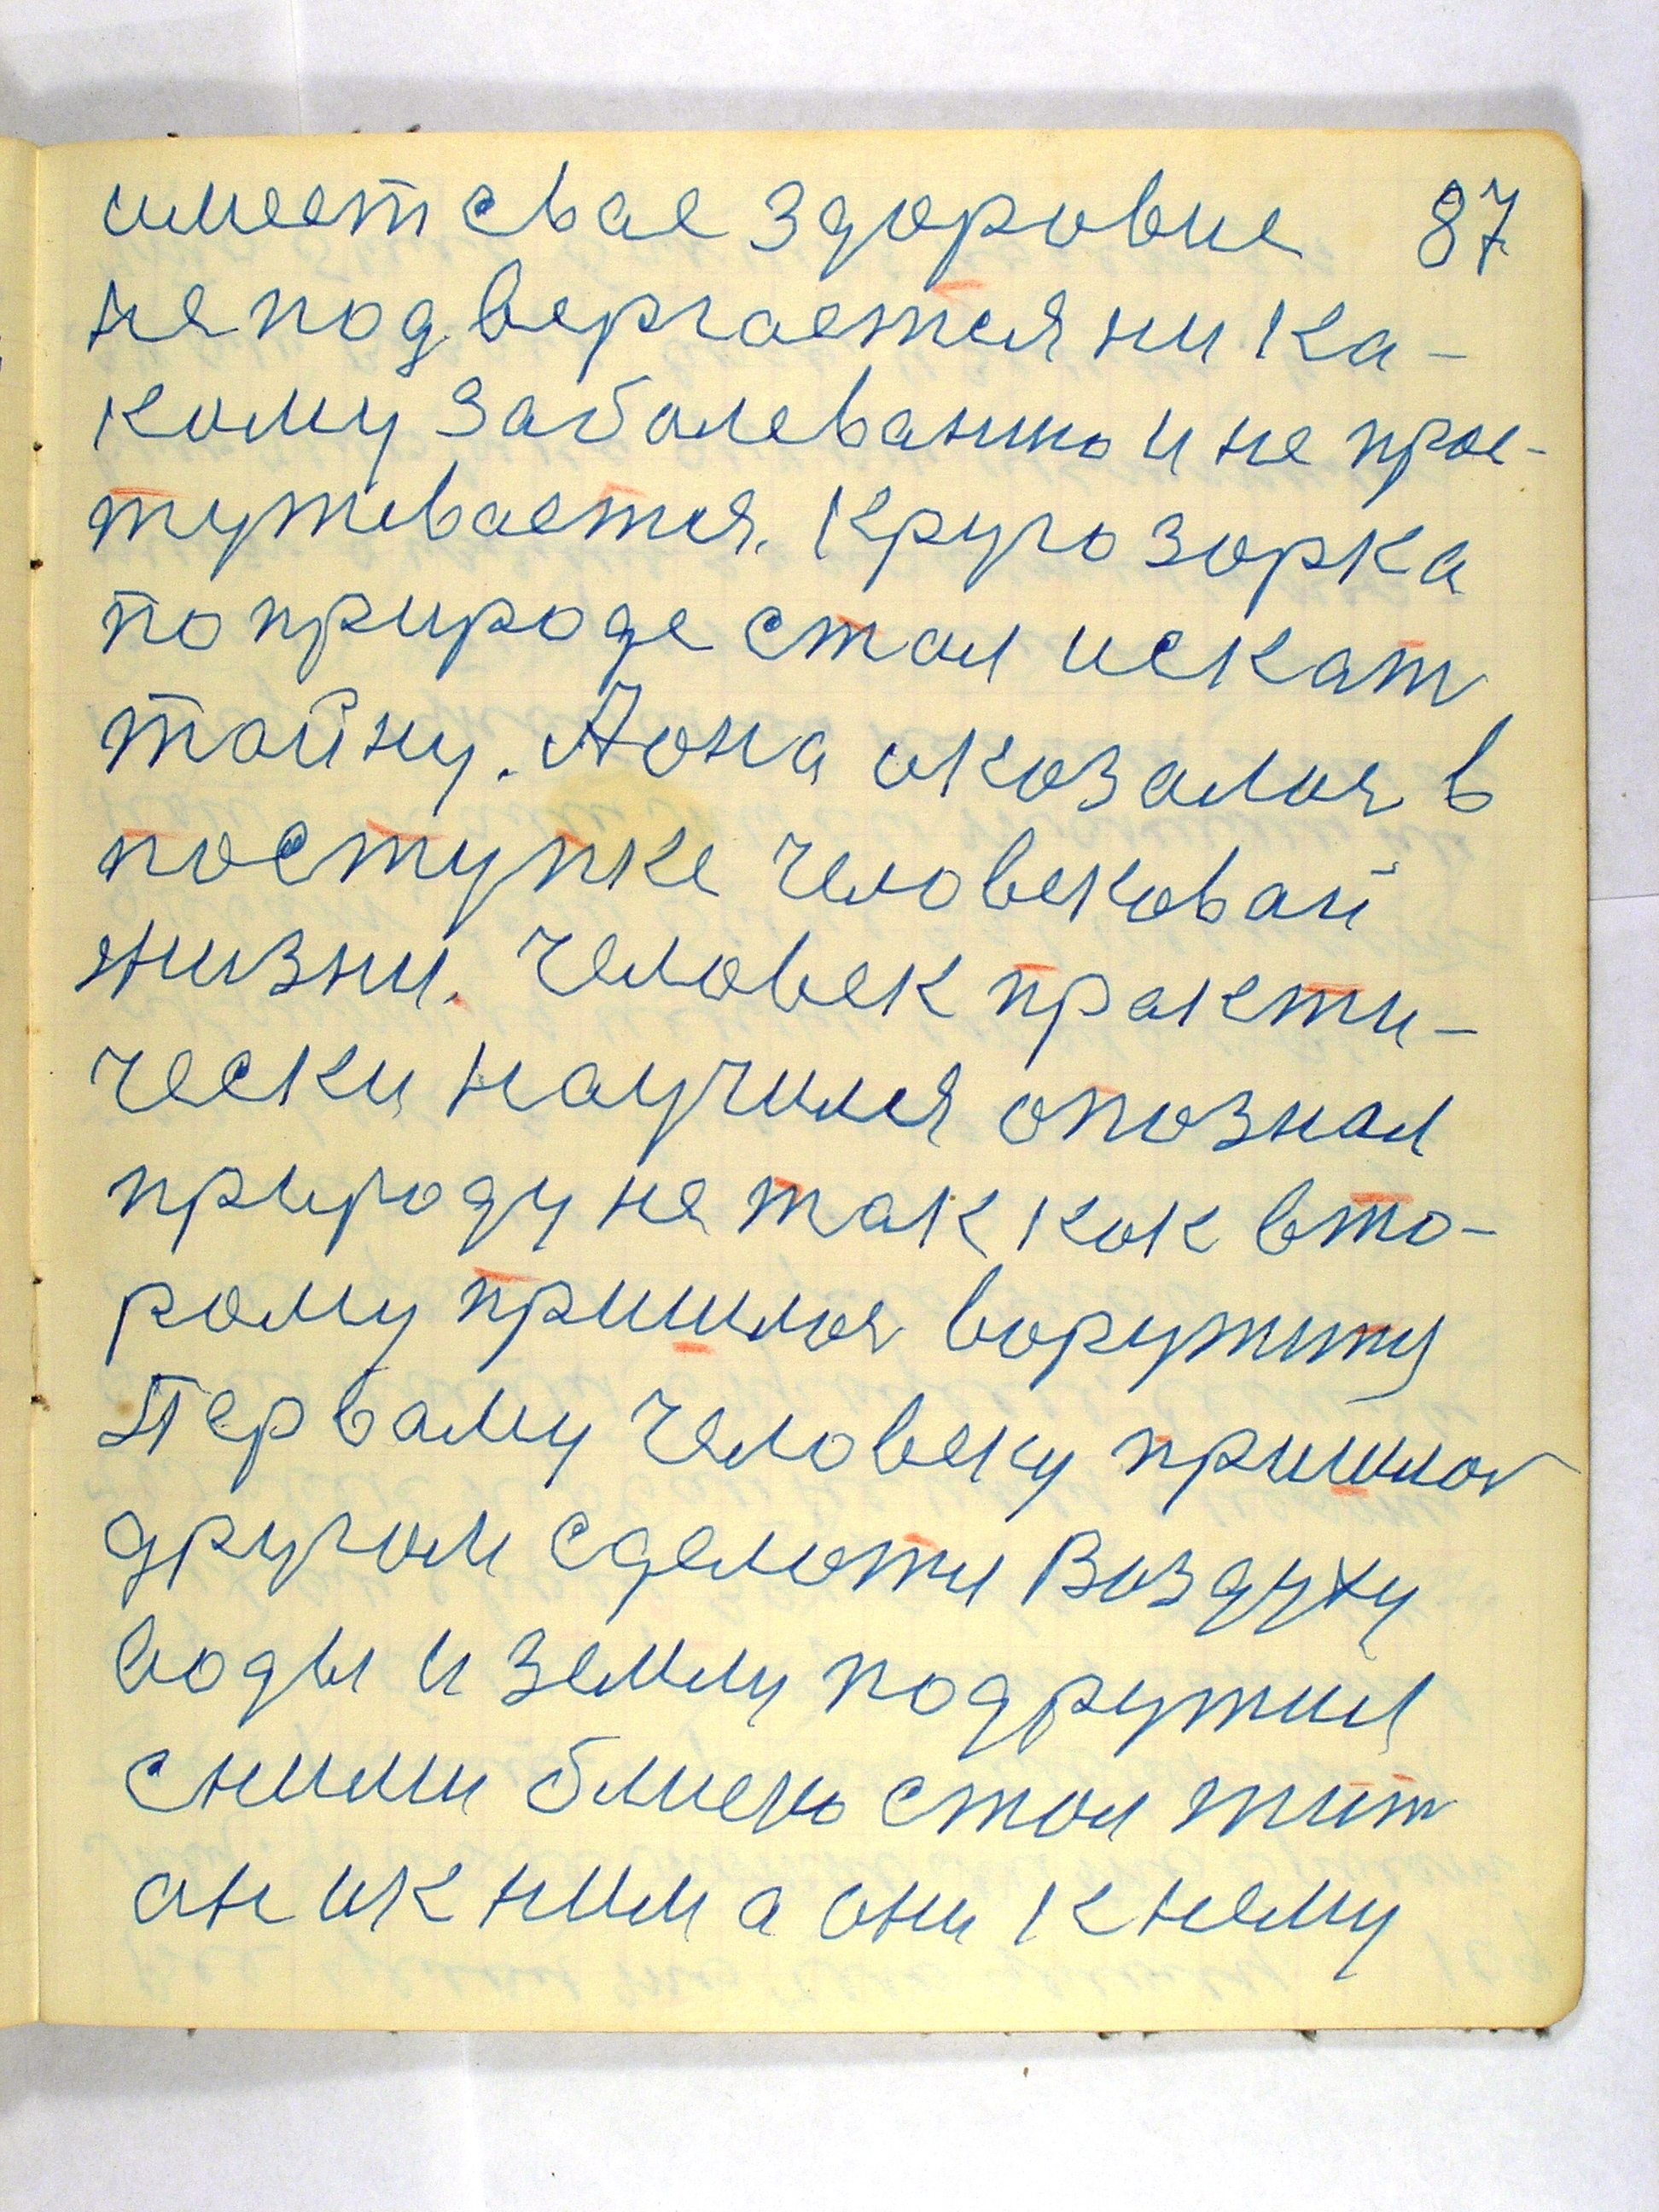 имеет свае здоровие 87
не подвергается ни ка-
кому заболеванию и не прос-
тужевается. Кругозорка
по природе стал искат
тайну. А она оказалоя в
поступке человековай
жизни. Человек практи-
чески научился опознал
природу не так как вто-
рому пришлоя воружит
Первому человеку пришлоя
другом сделоти Воздуху
воды и землу подружил
сними близко стал жит
он ик ним а они к нему